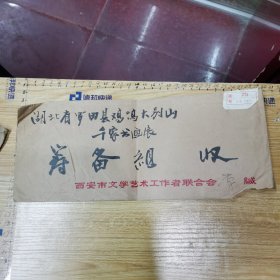 湖北省罗田县鸡鸣大别山
千家山画展
筹备组 收
西安市文学艺术工作者联合会 缄